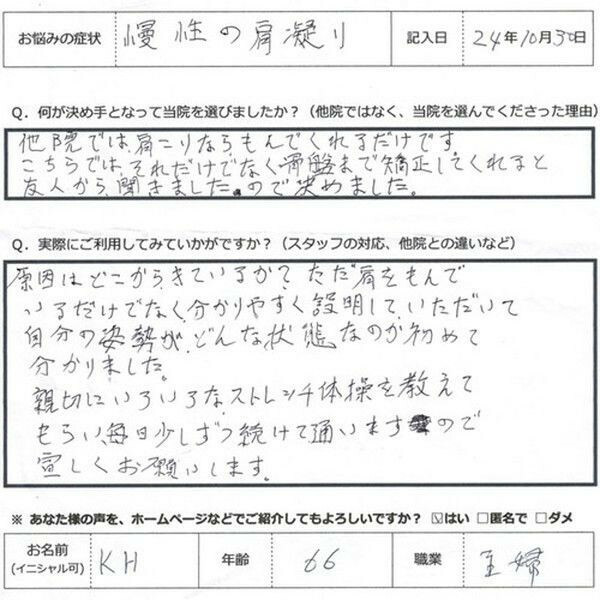 お悩みの症状 慢性の肩凝り 記入日 24年10月30日
Q. 何が決め手となって当院を選びましたか?(他院ではなく、当院を選んでくださった理由)
他院では、肩こりならもんでくれるだけです。
こちらでは、それだけでなく骨盤まで矯正してくれると
友人から、聞きました。ので決めました。
Q. 実際にご利用してみていかがですか?(スタッフの対応、他院との違いなど)
原因はどこからきているか?ただ肩をもんで
いるだけでなく、分かりやすく説明して、いただいて
自分の姿勢が、どんな状態なのか初めて
分かりました。
親切にいろいろな、ストレンチ体操を教えて
もらい、毎日少しずつ続けて通いますので
宜しくお願いします。
※ あなた様の声を、ホームページなどでご紹介してもよろしいですか? ☑はい □匿名で □ダメ
お名前 KH 年齢 66 職業 主婦
(イニシャル可)